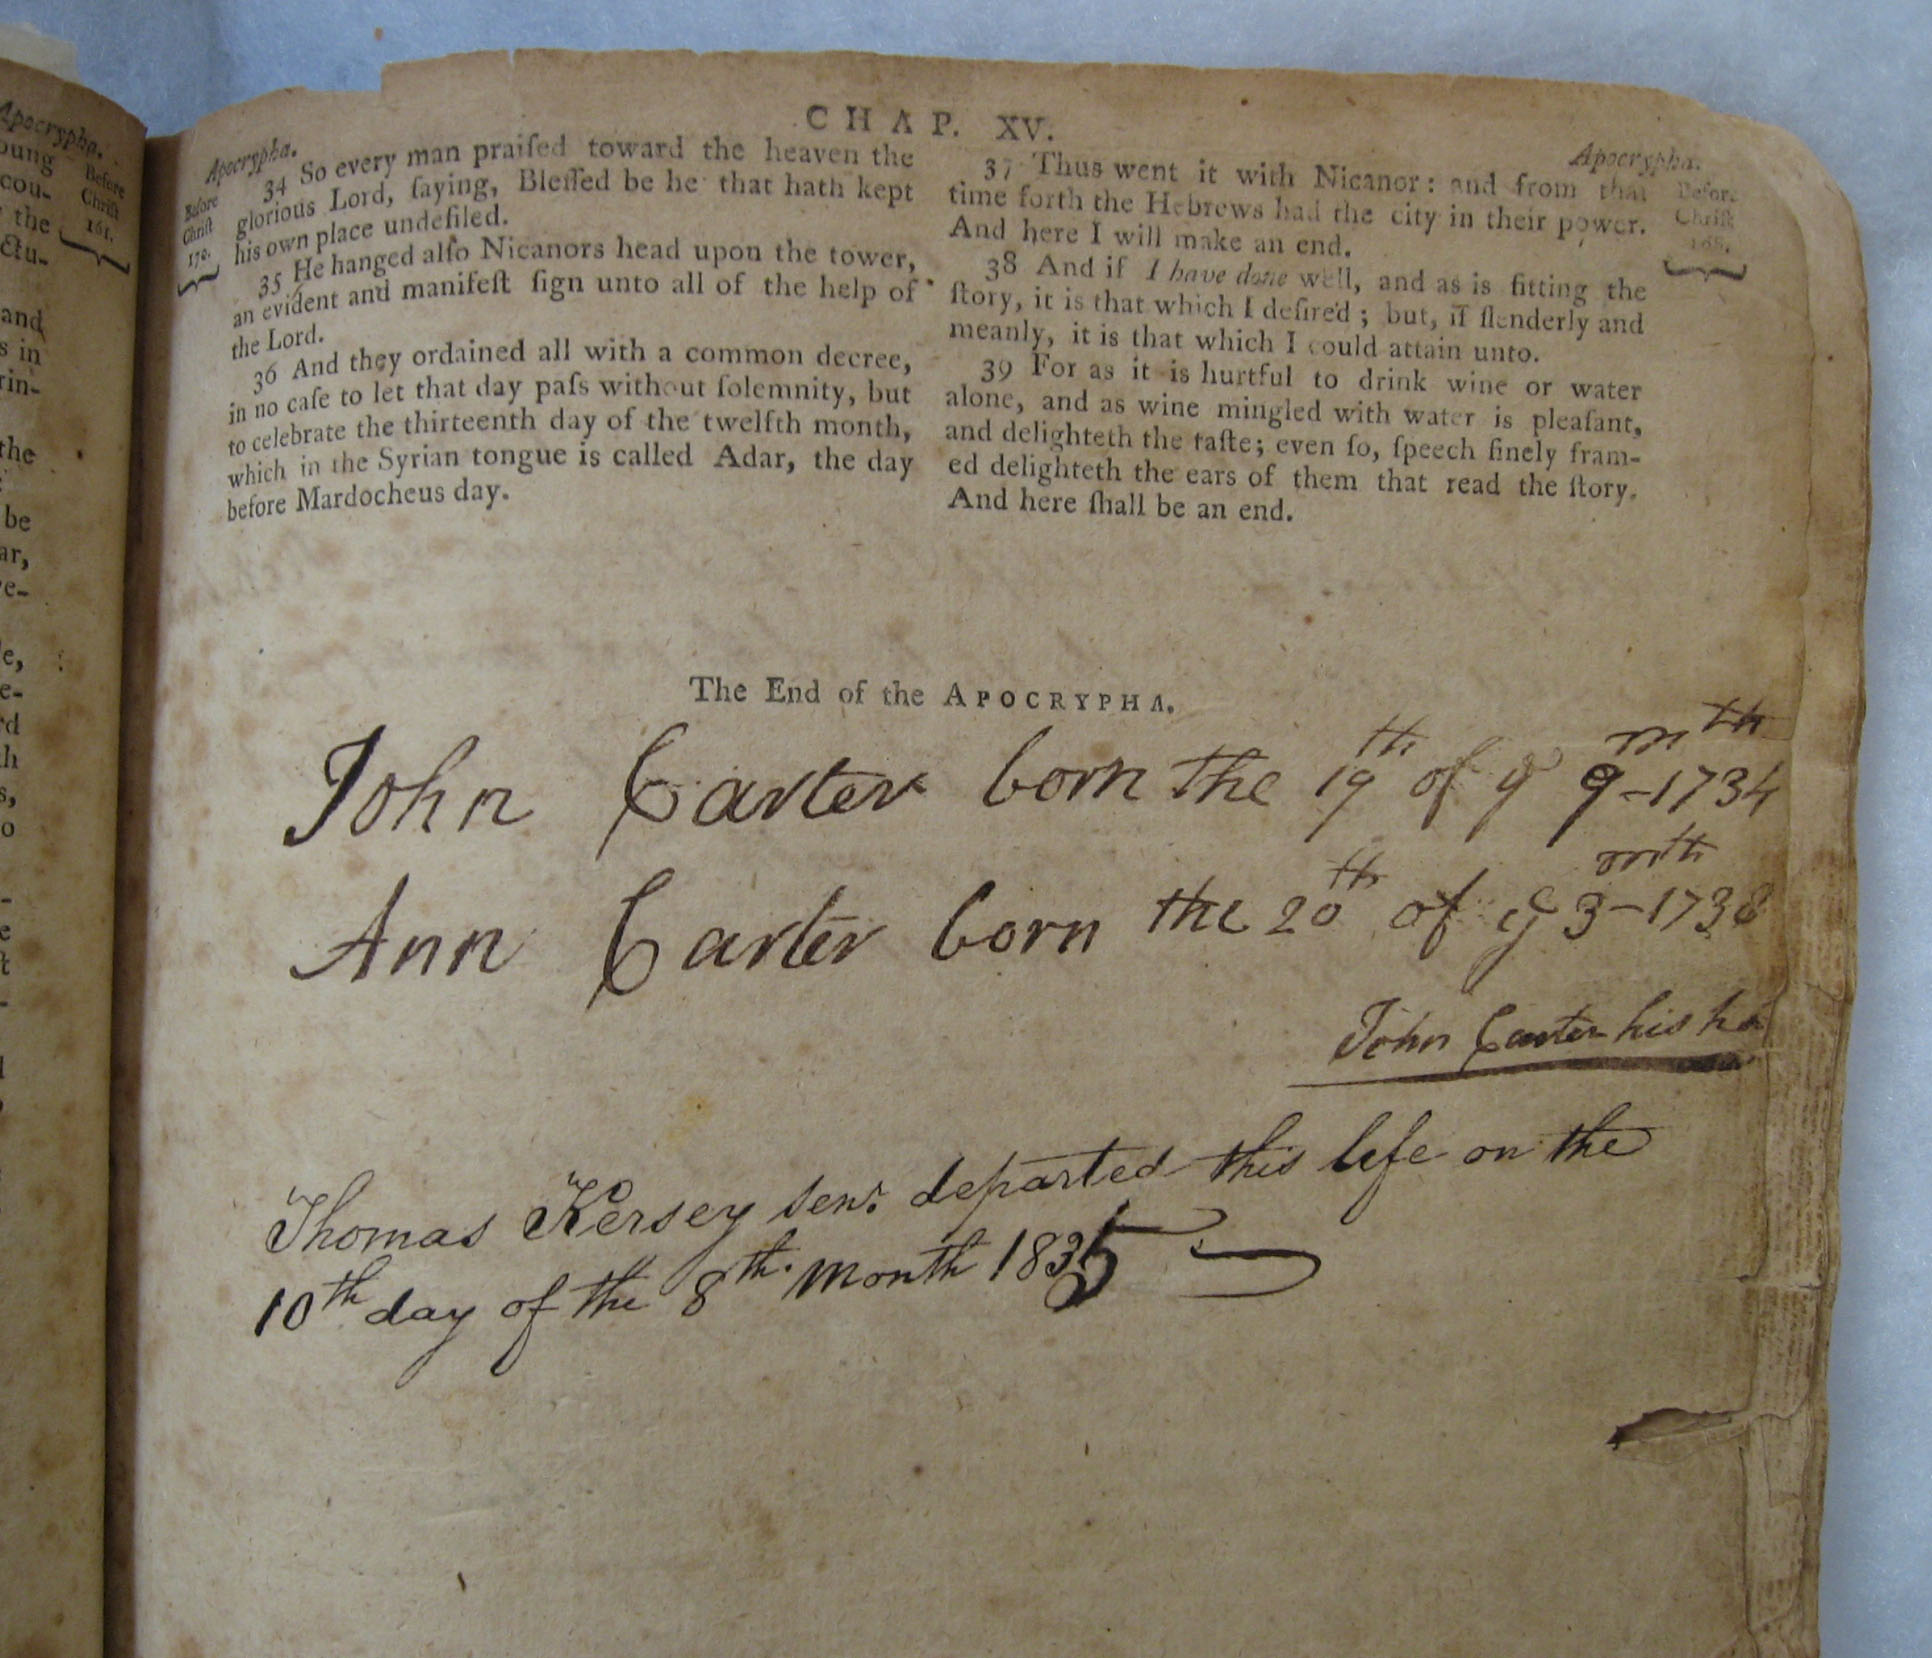 Apocrypha.
oung
cou-
the
ctu-
Before
Christ
161.
and
s in
rin-
the
be
ar,
e-
e,
e-
rd
th
s,
o
CHAP. XV.
Apocrypha.
Before
Christ
34 So every man praiſed toward the heaven the
glorious Lord, ſaying, Bleſſed be he that hath kept
his own place undefiled.
35 He hanged alſo Nicanors head upon the tower,
an evident and manifeſt ſign unto all of the help of
the Lord.
36 And they ordained all with a common decree,
in no caſe to let that day paſs without ſolemnity, but
to celebrate the thirteenth day of the twelfth month,
which in the Syrian tongue is called Adar, the day
before Mardocheus day.
Apocrypha.
Before
Chriſt
37 Thus went it with Nicanor: and from that
time forth the Hebrews had the city in their power.
And here I will make an end.
38 And if I have done well, and as is fitting the
ſtory, it is that which I deſired; but, if ſlenderly and
meanly, it is that which I could attain unto.
39 For as it is hurtful to drink wine or water
alone, and as wine mingled with water is pleaſant,
and delighteth the taſte; even ſo, ſpeech finely fram-
ed delighteth the ears of them that read the ſtory.
And here ſhall be an end.
The End of the APOCRYPHA.
John Carter born the 19th of ye 9mth-1734
Ann Carter born the 20th of ye 3mth-1738
John Carter his
Thomas Kersey senr. departed this life on the
10th day of the 8th. month 1835